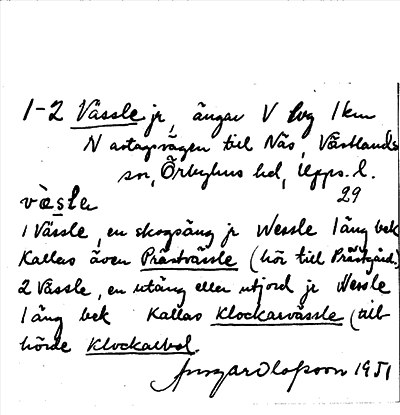 1-2 Vässle jr, ängar V lvg 1 km
N avtagsvägen till Näs, Västlands
sn, Örbyhus hd, Upps. l.
29
vèsle
1 Vässle, en skogsäng jr Wessle 1 äng bek
Kallas även Prästvässle (hör till Prästgård.)
2 Vässle, en utäng eller utjord jr Wessle
1 äng bek Kallas Klockarvässle (till-
hörde Klockarbol.
Ansgar Olofsson 1951